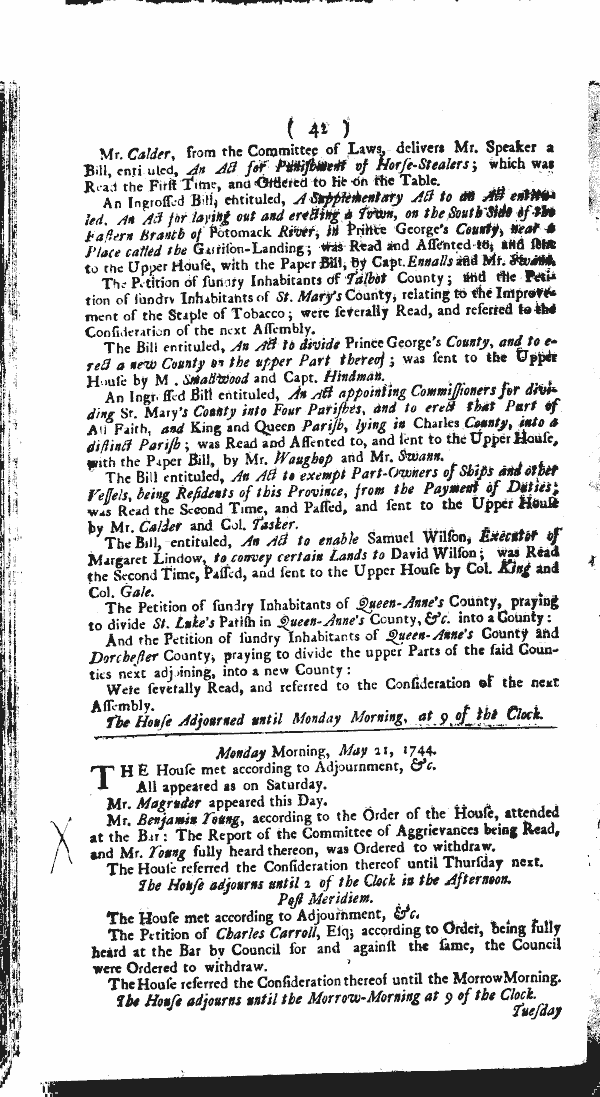 ( 42 )
Mr. Calder, from the Committee of Laws, delivers Mr. Speaker a
Bill, enti uled, An Act for Punishment of Horse-Stealers; which was
Read the First Time, and Ordered to lie on the Table.
An Ingrossed Bill, entituled, A Supplementary Act to an Act entitu-
led, An Act for laying out and erecting a Town, on the South Side of the
Eastern Branch of Potomack River, in Prince George's County, near a
Place called the Garrison-Landing; was Read and Assented to, and sent
to the Upper House, with the Paper Bill, by Capt. Ennalls and Mr. Swann.
The Petition of sundry Inhabitants of Talbot County; and the Peti-
tion of sundry Inhabitants of St. Mary's County, relating to the Improve-
ment of the Staple of Tobacco; were severally Read, and referred to the
Consideration of the next Assembly.
The Bill entituled, An Act to divide Prince George's County, and to e-
rect a new County on the upper Part thereof; was sent to the Upper
House by M . Smallwood and Capt. Hindman.
An Ingrossed Bill entituled, An Act appointing Commissioners for divi-
ding St. Mary's County into Four Parishes, and to erect that Part of
All Faith, and King and Queen Parish, lying in Charles County, into a
distinct Parish; was Read and Assented to, and sent to the Upper House,
with the Paper Bill, by Mr. Waughop and Mr. Swann.
The Bill entituled, An Act to exempt Part-Owners of Ships and other
Vessels, being Residents of this Province, from the Payment of Duties;
was Read the Second Time, and Passed, and sent to the Upper House
by Mr. Calder and Col. Tasker.
The Bill, entituled, An Act to enable Samuel Wilson, Executor of
Margaret Lindow, to convey certain Lands to David Wilson; was Read
the Second Time, Passed, and sent to the Upper House by Col. King and
Col. Gale.
The Petition of sundry Inhabitants of Queen-Anne's County, praying
to divide St. Luke's Parish in Queen-Anne's County, &c. into a County:
And the Petition of sundry Inhabitants of Queen-Anne's County and
Dorchester County, praying to divide the upper Parts of the said Coun-
ties next adjoining, into a new County:
Were severally Read, and referred to the Consideration of the next
Assembly.
The House Adjourned until Monday Morning, at 9 of the Clock.
Monday Morning, May 21, 1744.
THE House met according to Adjournment, &c.
All appeared as on Saturday.
Mr. Magruder appeared this Day.
Mr. Benjamin Young, according to the Order of the House, attended
at the Bar: The Report of the Committee of Aggrievances being Read,
and Mr. Young fully heard thereon, was Ordered to withdraw.
The House referred the Consideration thereof until Thursday next.
The House adjourns until 2 of the Clock in the Afternoon.
Post Meridiem.
The House met according to Adjournment, &c.
The Petition of Charles Carroll, Esq; according to Order, being fully
heard at the Bar by Council for and against the same, the Council
were Ordered to withdraw.
The House referred the Consideration thereof until the Morrow Morning.
The House adjourns until the Morrow-Morning at 9 of the Clock.
Tuesday